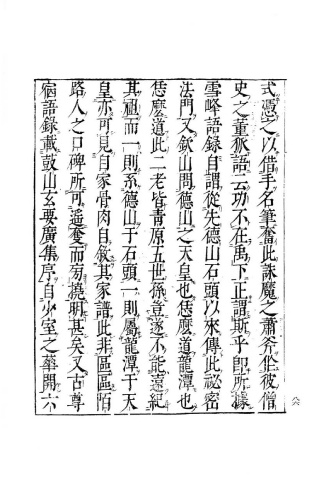 式憑之以借手名筆奮此誅魔之蕭斧俾彼僧
史之董狐語云功不在禹下正謂斯乎即所據
雪峰語錄自謂從先德山石頭以來傳此祕密
法門又欽山問德山之天皇也恁麼道龍潭也
恁麼道此二老皆青原五世孫豈遂不能遠紀
其祖而一則系德山于石頭一則屬龍潭于天
皇亦可見自家骨肉自敘其家譜此非區區陌
路人之口碑所可遥奪而旁撓明甚矣又古尊
宿語錄載鼓山玄要廣集序自少室之華開六